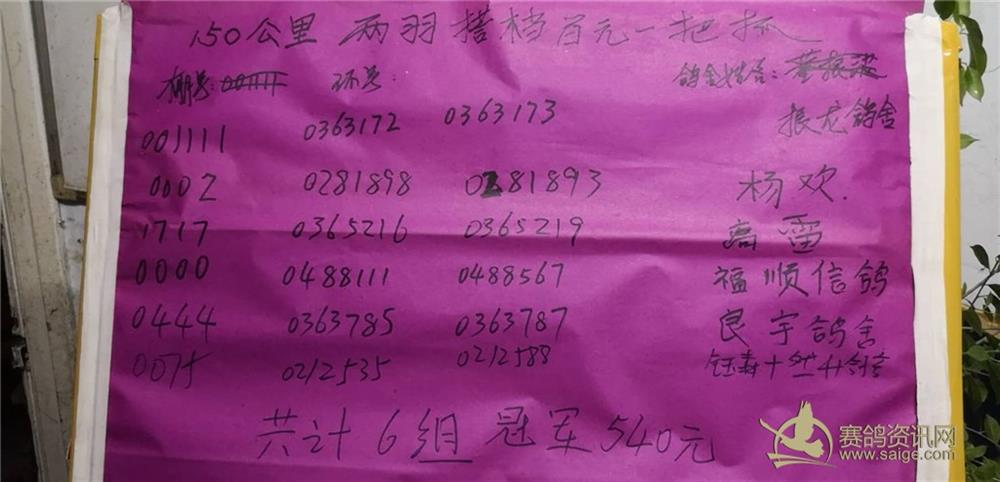 150公里 两羽搭档百元一把抓
棚号: 环号: 鸽舍姓名:
001111 0363172 0363173 振龙鸽舍
0002 0281898 0281893 杨欢
1717 0365216 0365219 高雷
0000 0488111 0488567 福顺信鸽
0444 0363785 0363787 良宇鸽舍
0075 0212535 0212588 钰森+
共计6组 冠军540元
赛鸽资讯网
www.saige.com